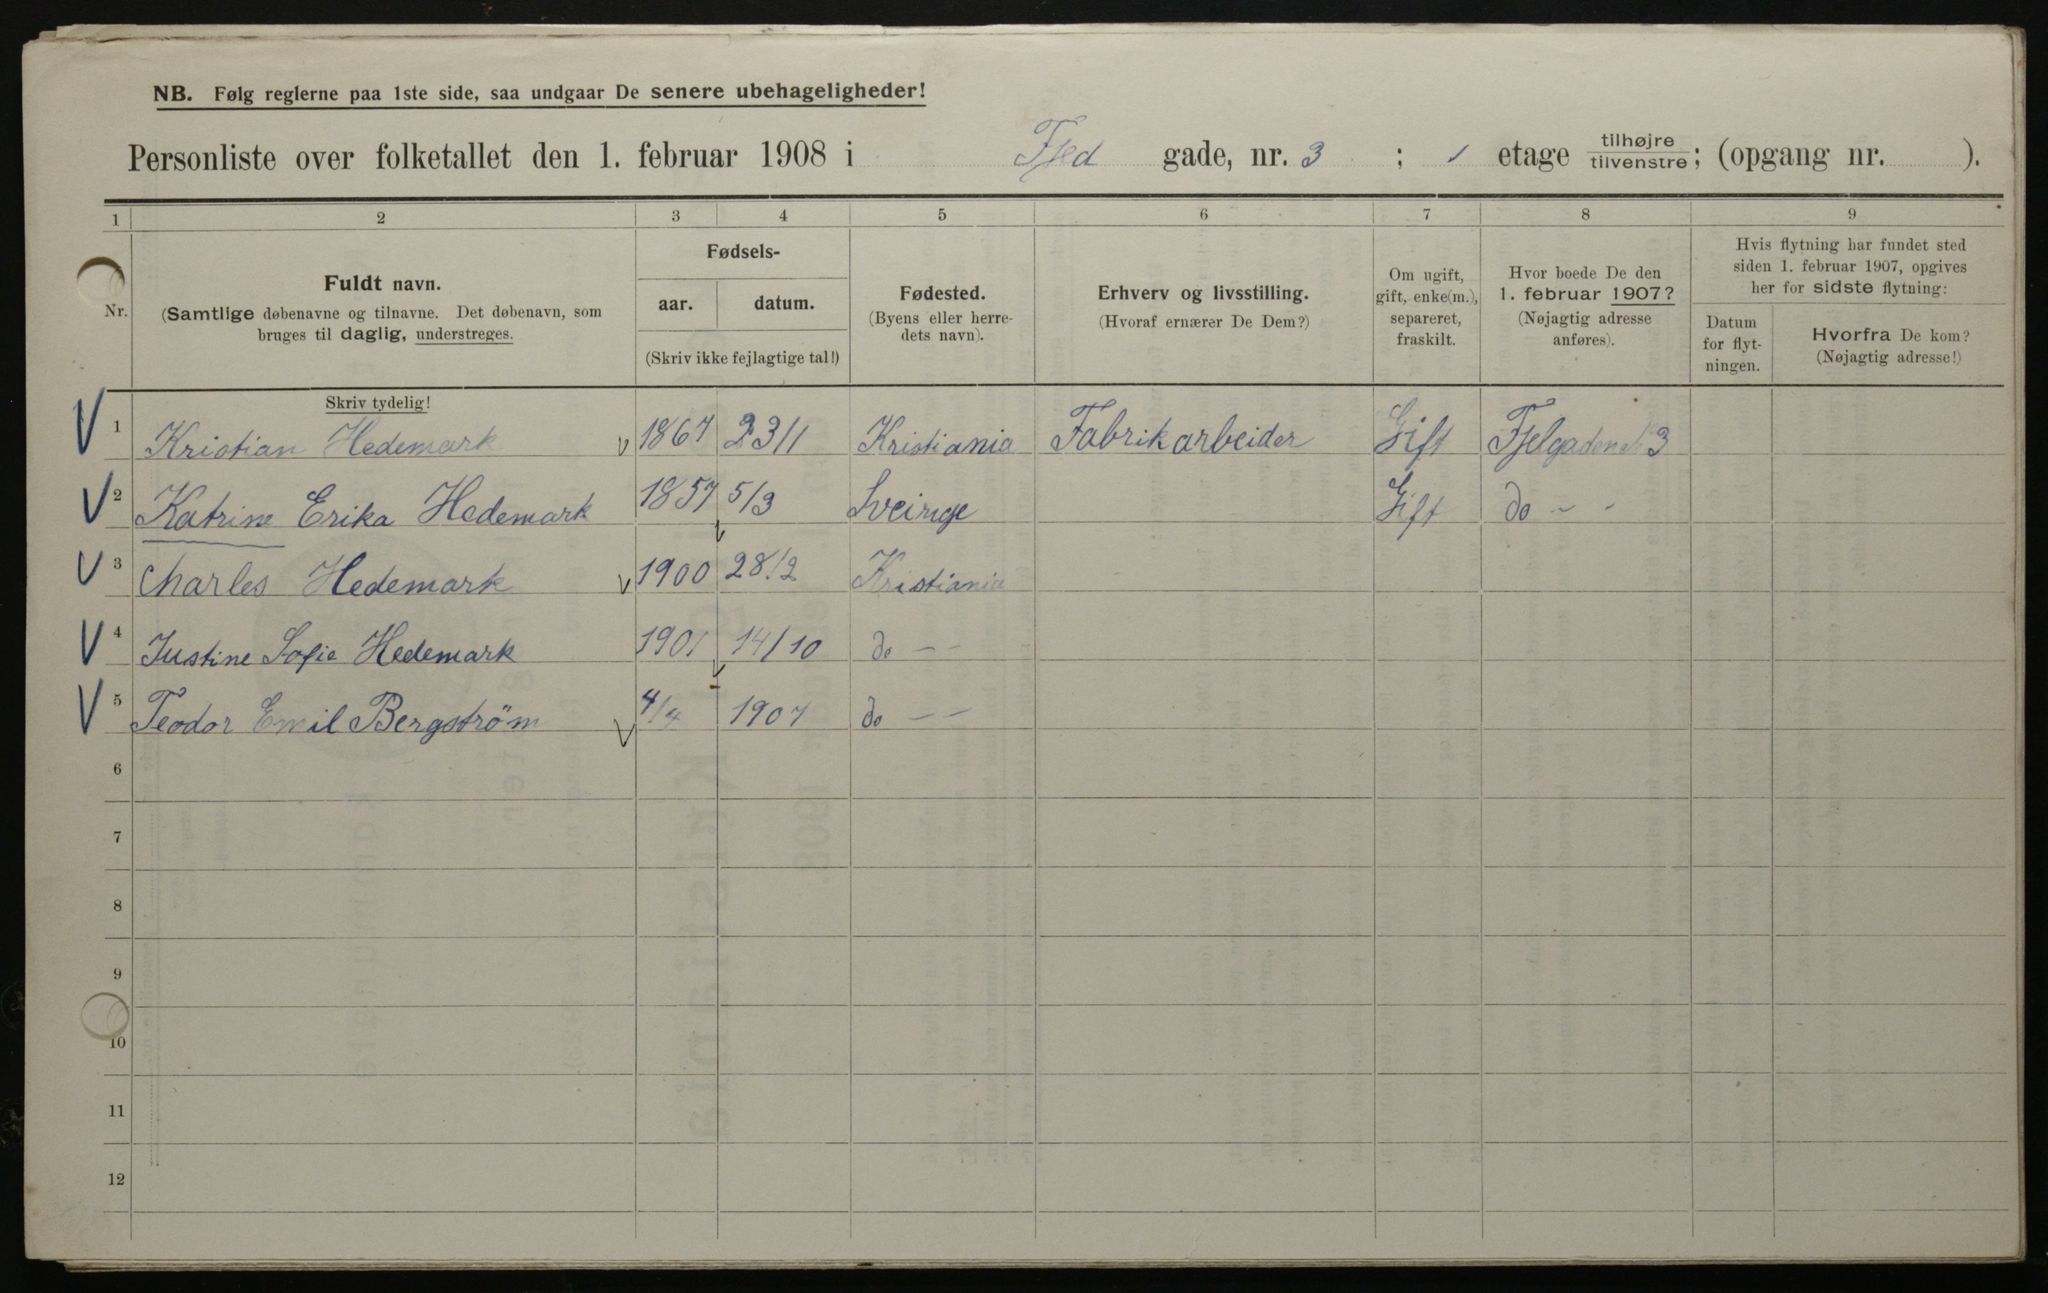 NB. Følg reglerne paa 1ste side, saa undgaar De senere ubehageligheder!
Personliste over folketallet den 1. februar 1908 i Fjed gade, nr. 3 ; 1 etage tilhøjre tilvenstre; (opgang nr. ).
1 2 3 4 5 6 7 8 9
Nr.
Fuldt navn.
(Samtlige døbenavne og tilnavne. Det døbenavn, som
bruges til daglig, understreges.
Skriv tydelig!
Fødsels-
aar. datum.
(Skriv ikke fejlagtige tal!)
Fødested.
(Byens eller herre-
dets navn).
Erhverv og livsstilling.
(Hvoraf ernærer De Dem?)
Om ugift,
gift, enke(m.),
separeret,
fraskilt.
Hvor boede De den
1. februar 1907?
(Nøjagtig adresse
anføres).
Hvis flytning har fundet sted
siden 1. februar 1907, opgives
her for sidste flytning:
Datum
for flyt-
ningen.
Hvorfra De kom?
(Nøjagtig adresse!)
V 1 Kristian Hedemark v 1867 23/1 Kristiania Fabrikarbeider Gift Fjelgaden N 3
V 2 Katrine Erika Hedemark 1857 5/3 Sveirige Gift do - -
V 3 Charles Hedemark v 1900 28/2 Kristiania
V 4 Justine Sofie Hedemark 1901 14/10 do - -
V 5 Teodor Emil Bergström v 4/4 1907 do - -
6
7
8
9
10
11
12